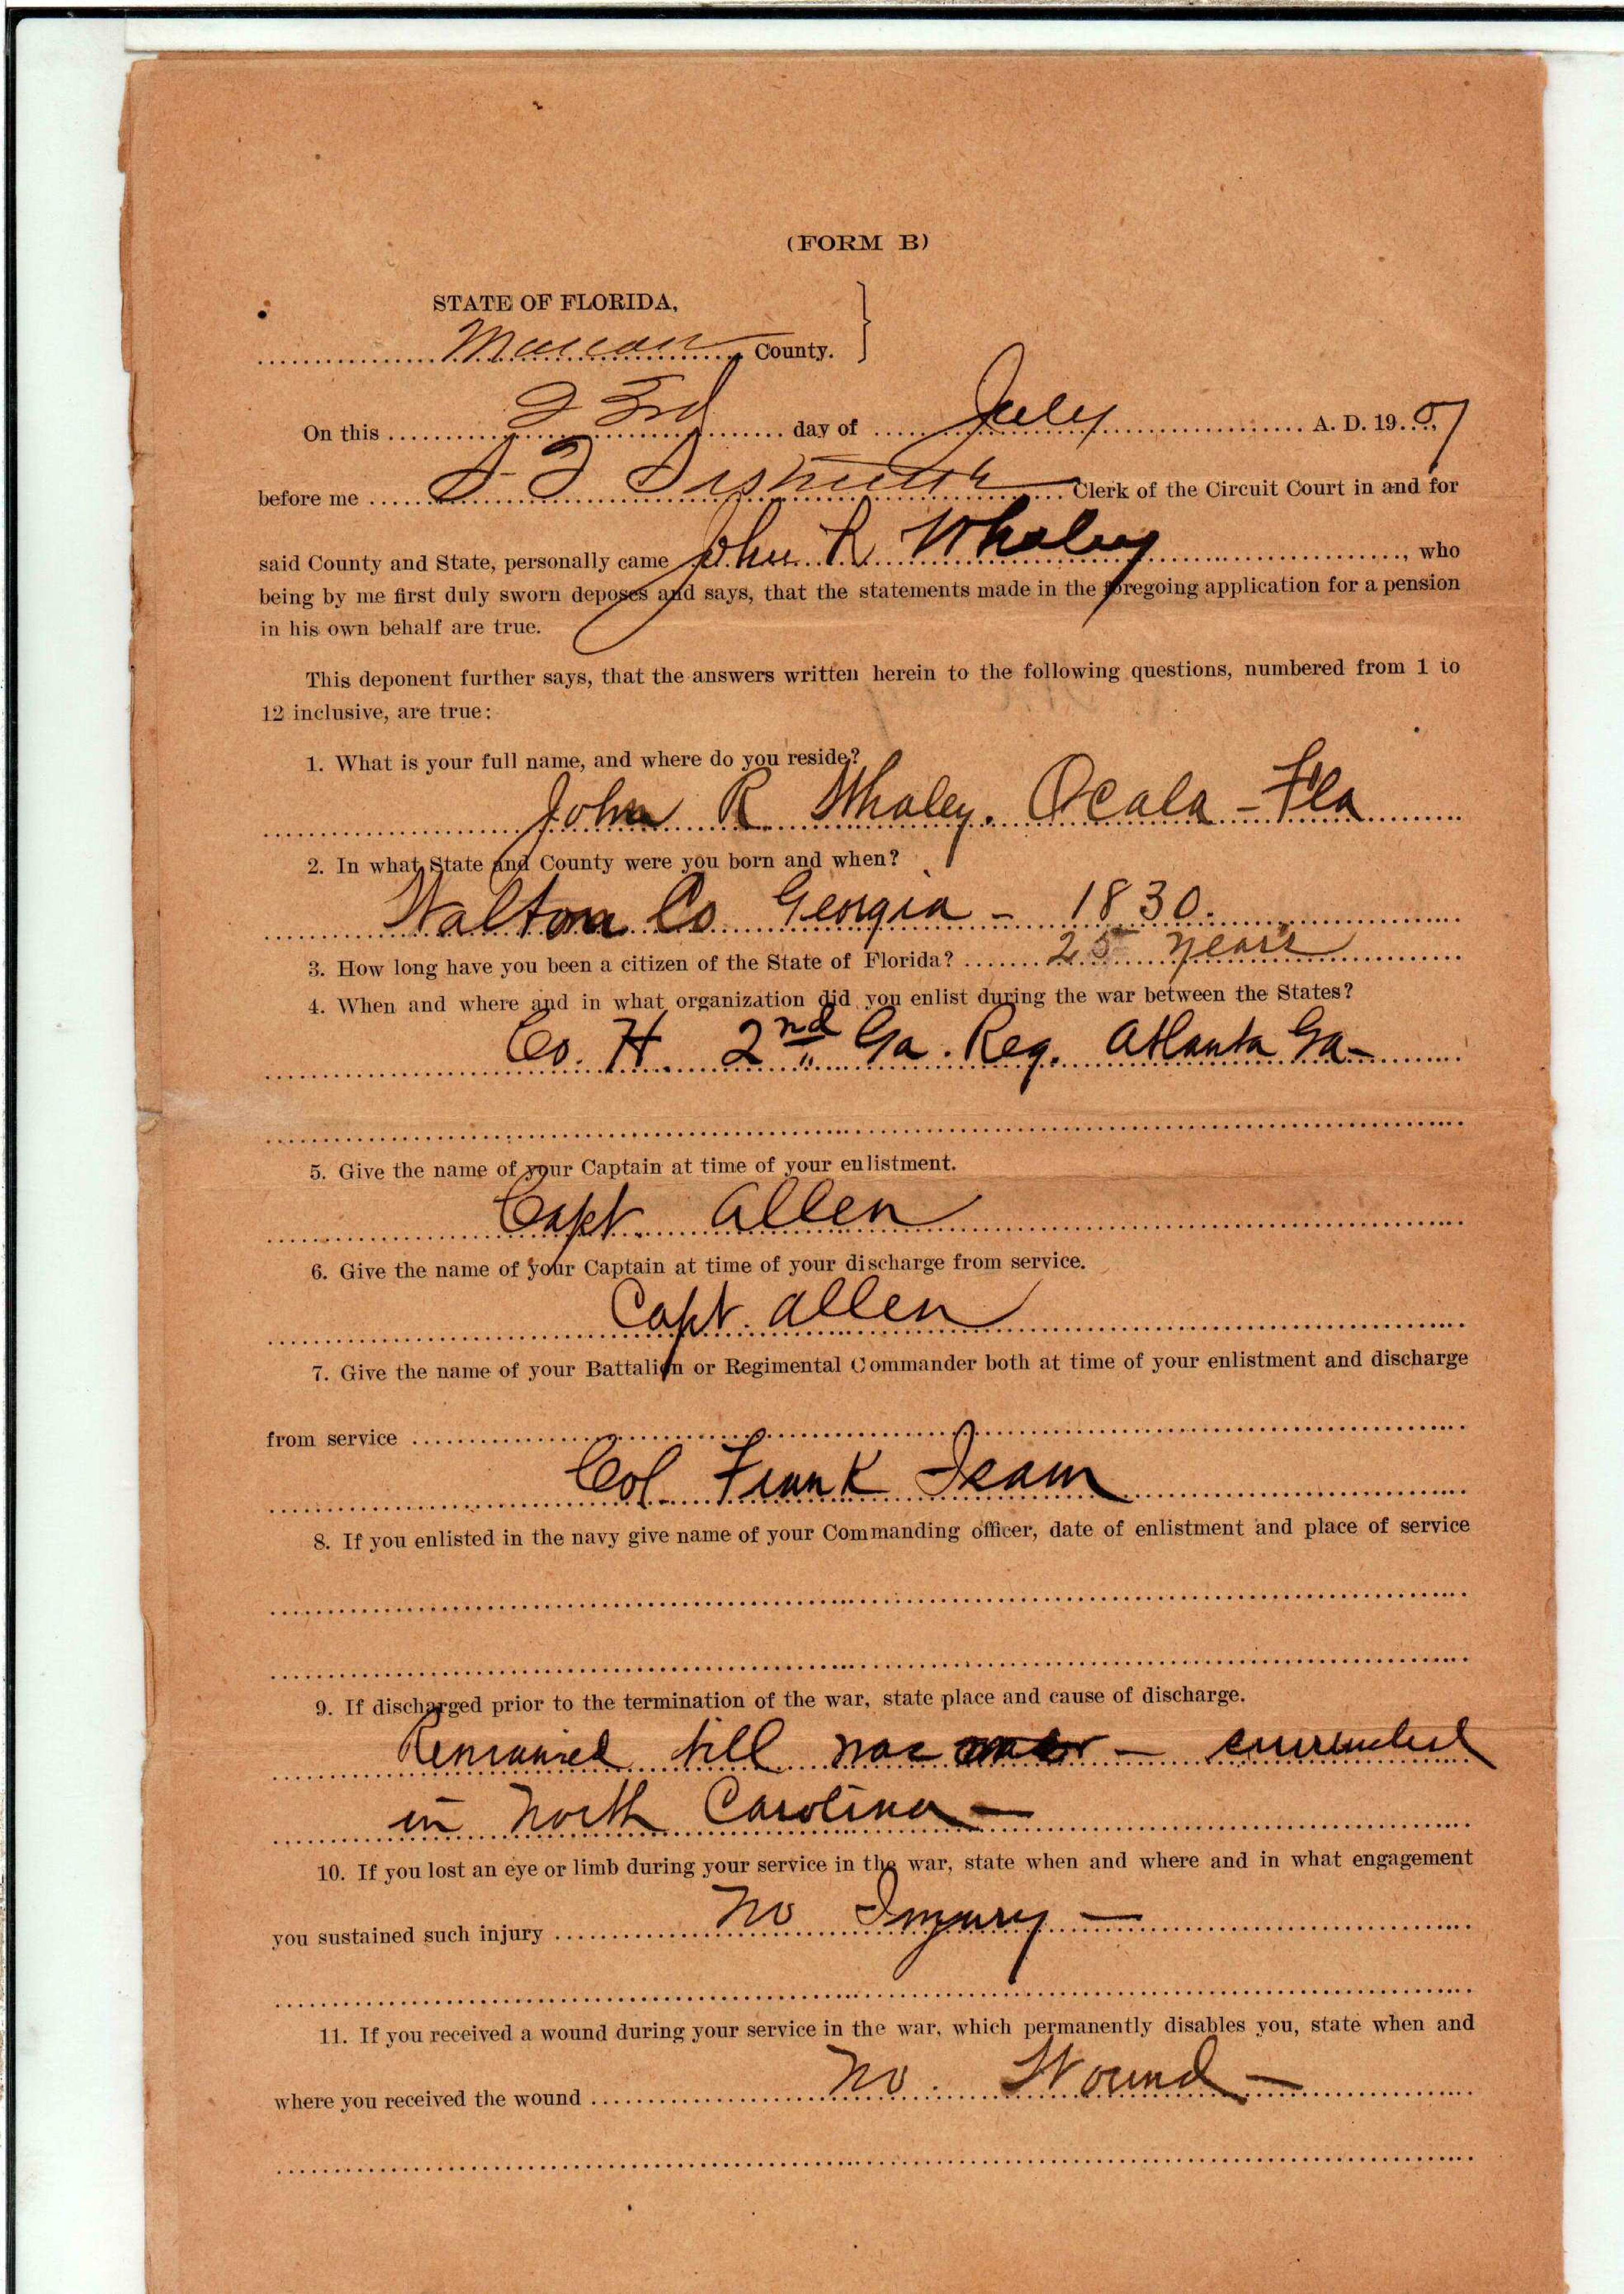 (FORM B)
STATE OF FLORIDA,
Marion County.
On this 23rd day of July A. D. 1907
before me Clerk of the Circuit Court in and for
said County and State, personally came John R Whaley, who
being by me first duly sworn deposes and says, that the statements made in the foregoing application for a pension
in his own behalf are true.
This deponent further says, that the answers written herein to the following questions, numbered from 1 to
12 inclusive, are true:
1. What is your full name, and where do you reside?
John R Whaley. Ocala - Fla
2. In what State and County were you born and when?
Walton Co Georgia - 1830.
3. How long have you been a citizen of the State of Florida? 25 years
4. When and where and in what organization did you enlist during the war between the States?
Co. H. 2nd Ga. Reg. Atlanta Ga-
5. Give the name of your Captain at time of your enlistment.
Capt. Allen
6. Give the name of your Captain at time of your discharge from service.
Capt. Allen
7. Give the name of your Battalion or Regimental Commander both at time of your enlistment and discharge
from service
Col. Frank
8. If you enlisted in the navy give name of your Commanding officer, date of enlistment and place of service
9. If discharged prior to the termination of the war, state place and cause of discharge.
Remained till -
in North Carolina -
10. If you lost an eye or limb during your service in the war, state when and where and in what engagement
you sustained such injury No Injury -
11. If you received a wound during your service in the war, which permanently disables you, state when and
where you received the wound No Wound -